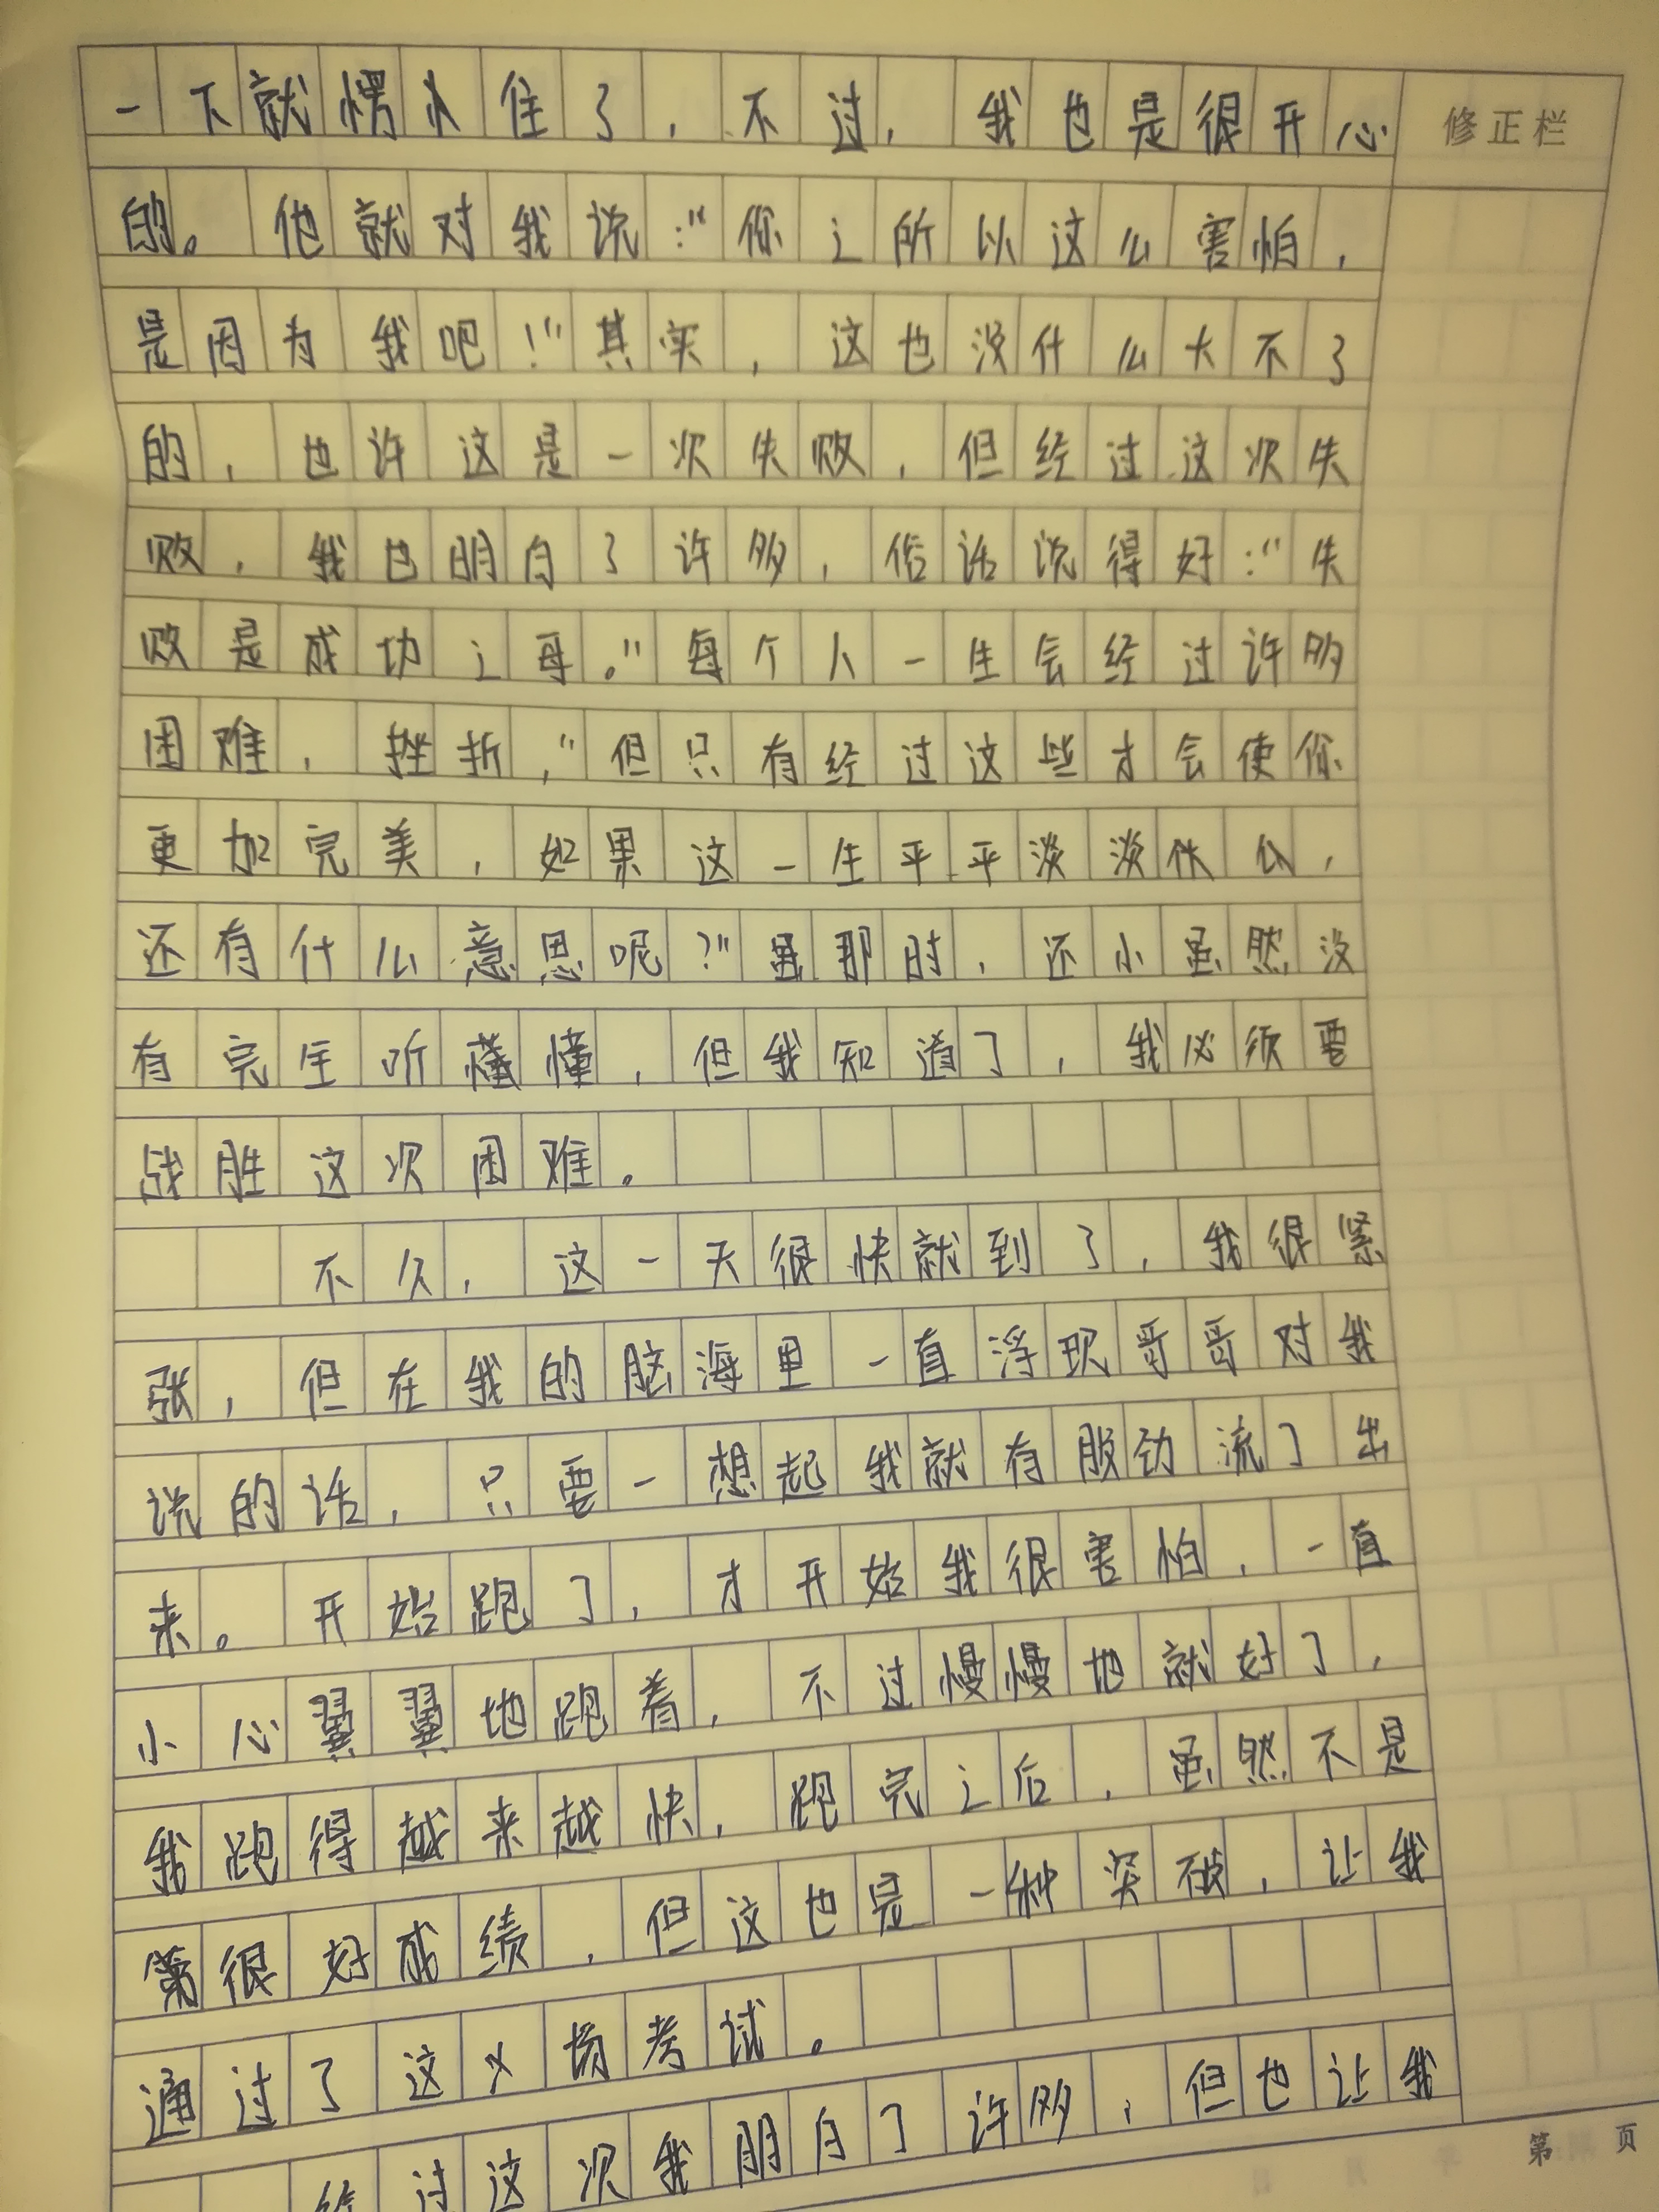 一下就愣住了，不过，我也是很开心
修正栏
的。他就对我说："你之所以这么害怕，
是因为我吧！"其实，这也没什么大不了
的，也许这是一次失败，但经过这次失
败，我也明白了许多，俗话说得好："失
败是成功之母。"每个人一生会经过许多
困难，挫折，"但只有经过这些才会使你
更加完美，如果这一生平平淡淡，
还有什么意思呢？"那时，还小虽然没
有完全听懂，但我知道了，我必须要
战胜这次困难。
不久，这一天很快就到了，我很紧
张，但在我的脑海里一直浮现哥哥对我
说的话，只要一想起我就有股劲流了出
来。开始跑了，才开始我很害怕，一直
小心翼翼地跑着，不过慢慢地就好了，
我跑得越来越快，跑完之后，虽然不是
很好成绩，但这也是一种突破，让我
通过了这场考试。
经过这次我明白了许多，但也让我
第 页